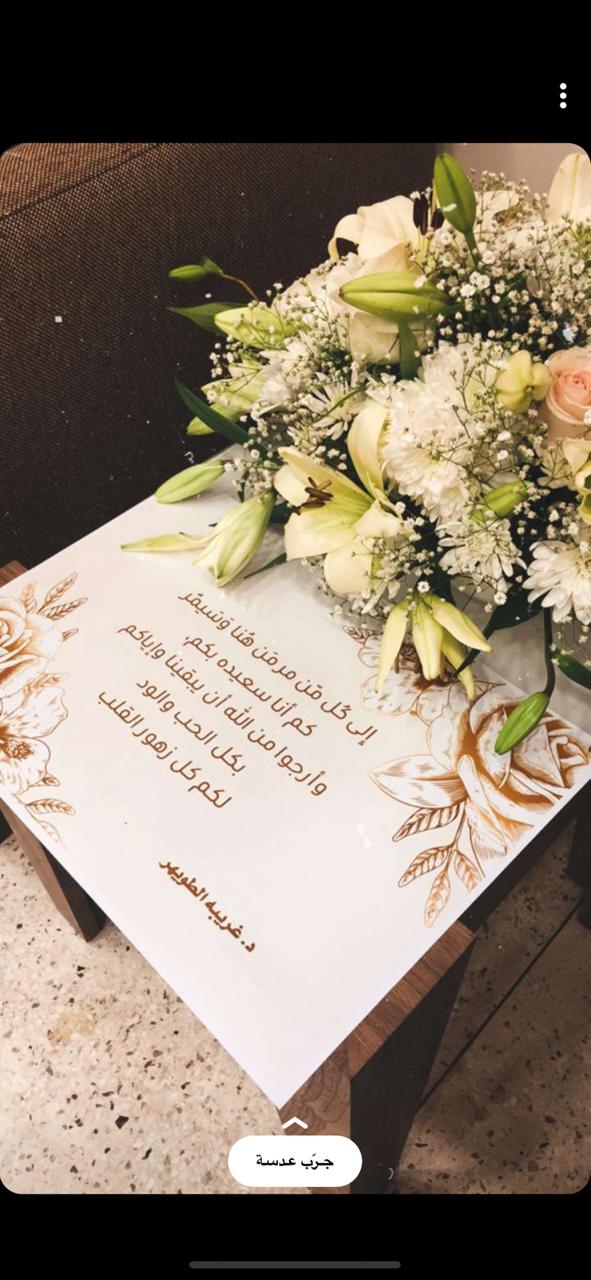 إلى كُل مَن مر مَن هُنا وَسيمُر
كم أنا سعيده بكم،
وأرجوا من الله أن يبقينا وإياكم
بكل الحب والود
لكم كل زهور القلب
د. غريبه الطويهر
جرّب عدسة